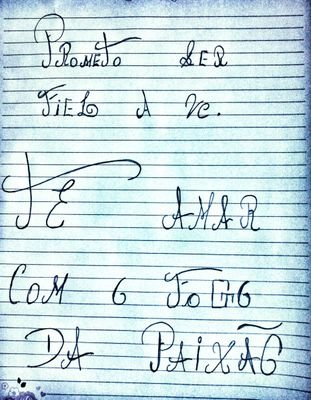 PROMETO SER
FIEL A VC.
TE AMAR
COM O FOGO
DA PAIXÃO